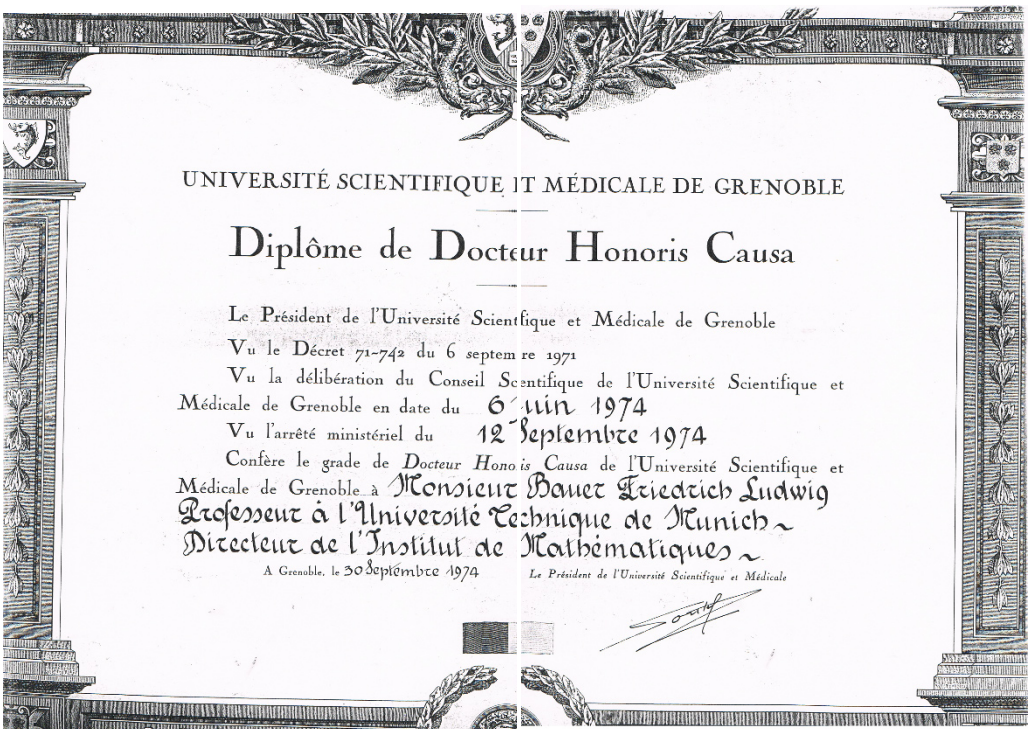 UNIVERSITÉ SCIENTIFIQUE ET MÉDICALE DE GRENOBLE
Diplôme de Docteur Honoris Causa
Le Président de l'Université Scientifique et Médicale de Grenoble
Vu le Décret 71-742 du 6 septembre 1971
Vu la délibération du Conseil Scientifique de l'Université Scientifique et
Médicale de Grenoble en date du 6 Juin 1974
Vu l'arrêté ministériel du 12 Septembre 1974
Confère le grade de Docteur Honoris Causa de l'Université Scientifique et
Médicale de Grenoble à Monsieur Bauer Friedrich Ludwig
Professeur à l'Université Technique de Munich~
Directeur de l'Institut de Mathématiques~
A Grenoble, le 30 Septembre 1974 Le Président de l'Université Scientifique et Médicale